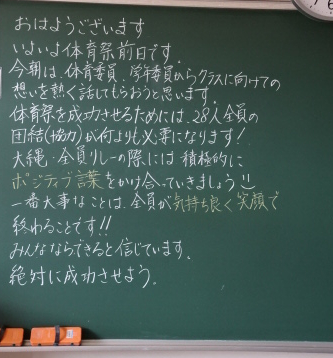 おはようございます
いよいよ体育祭前日です.
今朝は、体育委員、学年委員からクラスに向けての
想いを熱く話してもらおうと思います.
体育祭を成功させるためには、28人全員の
団結(協力)が何よりも必要になります!
大縄・全員リレーの際には積極的に
ポジティブ言葉をかけ合っていきましょう
一番大事なことは、全員が気持ち良く笑顔で
終わることです!!
みんなならできると信じています.
絶対に成功させよう.